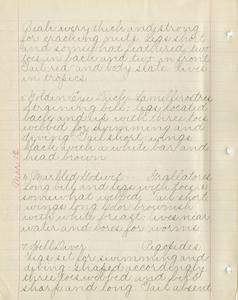 Beak very thick and strong
for cracking nuts. Legs short
and somewhat feathered, two
toes in back and two in front
Tail red and body slate. Lives
in tropics.
Golden Eye Duck. Lamellirostres
straining bill. Legs located
back and up with three toes
webbed for swimming and
diving. Tail short wings
black with a white bar and
head brown.
Marbled Godwit. Grallatores
Long bill and legs with toes
somewhat webbed. Tail short
wings long color brownish
with white breast. Lives near
water and bores for worms.
Hell Diver. Pygopides.
Legs set for swimming and
diving shaped accordingly
three toes webbed and beak
sharp and long. Tail absent